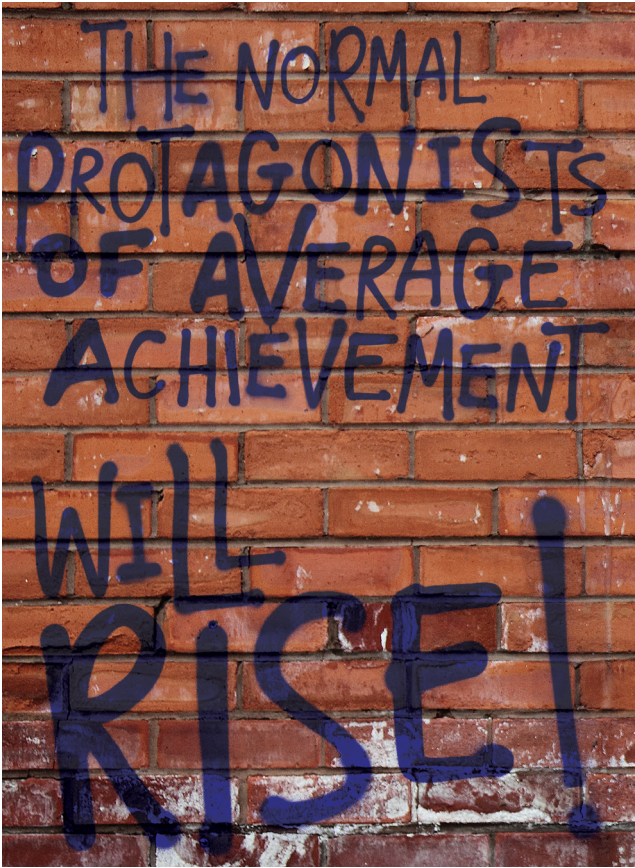 THE NORMAL
PROTAGONISTS
OF AVERAGE
ACHIEVEMENT
WILL
RISE!